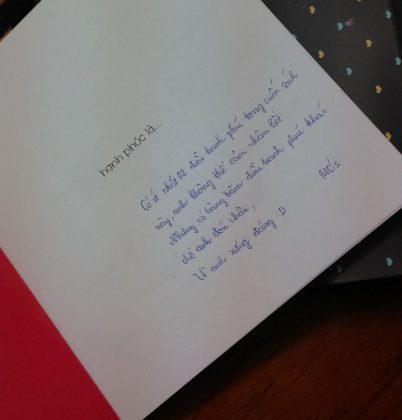 hạnh phúc là...
Có ít nhất 02 điều hạnh phúc trong cuốn sách
này, anh không thể cảm nhận hết
Nhưng có hàng trăm điều hạnh phúc khác
chờ anh đón nhận,
Vì anh xứng đáng :D
MCs